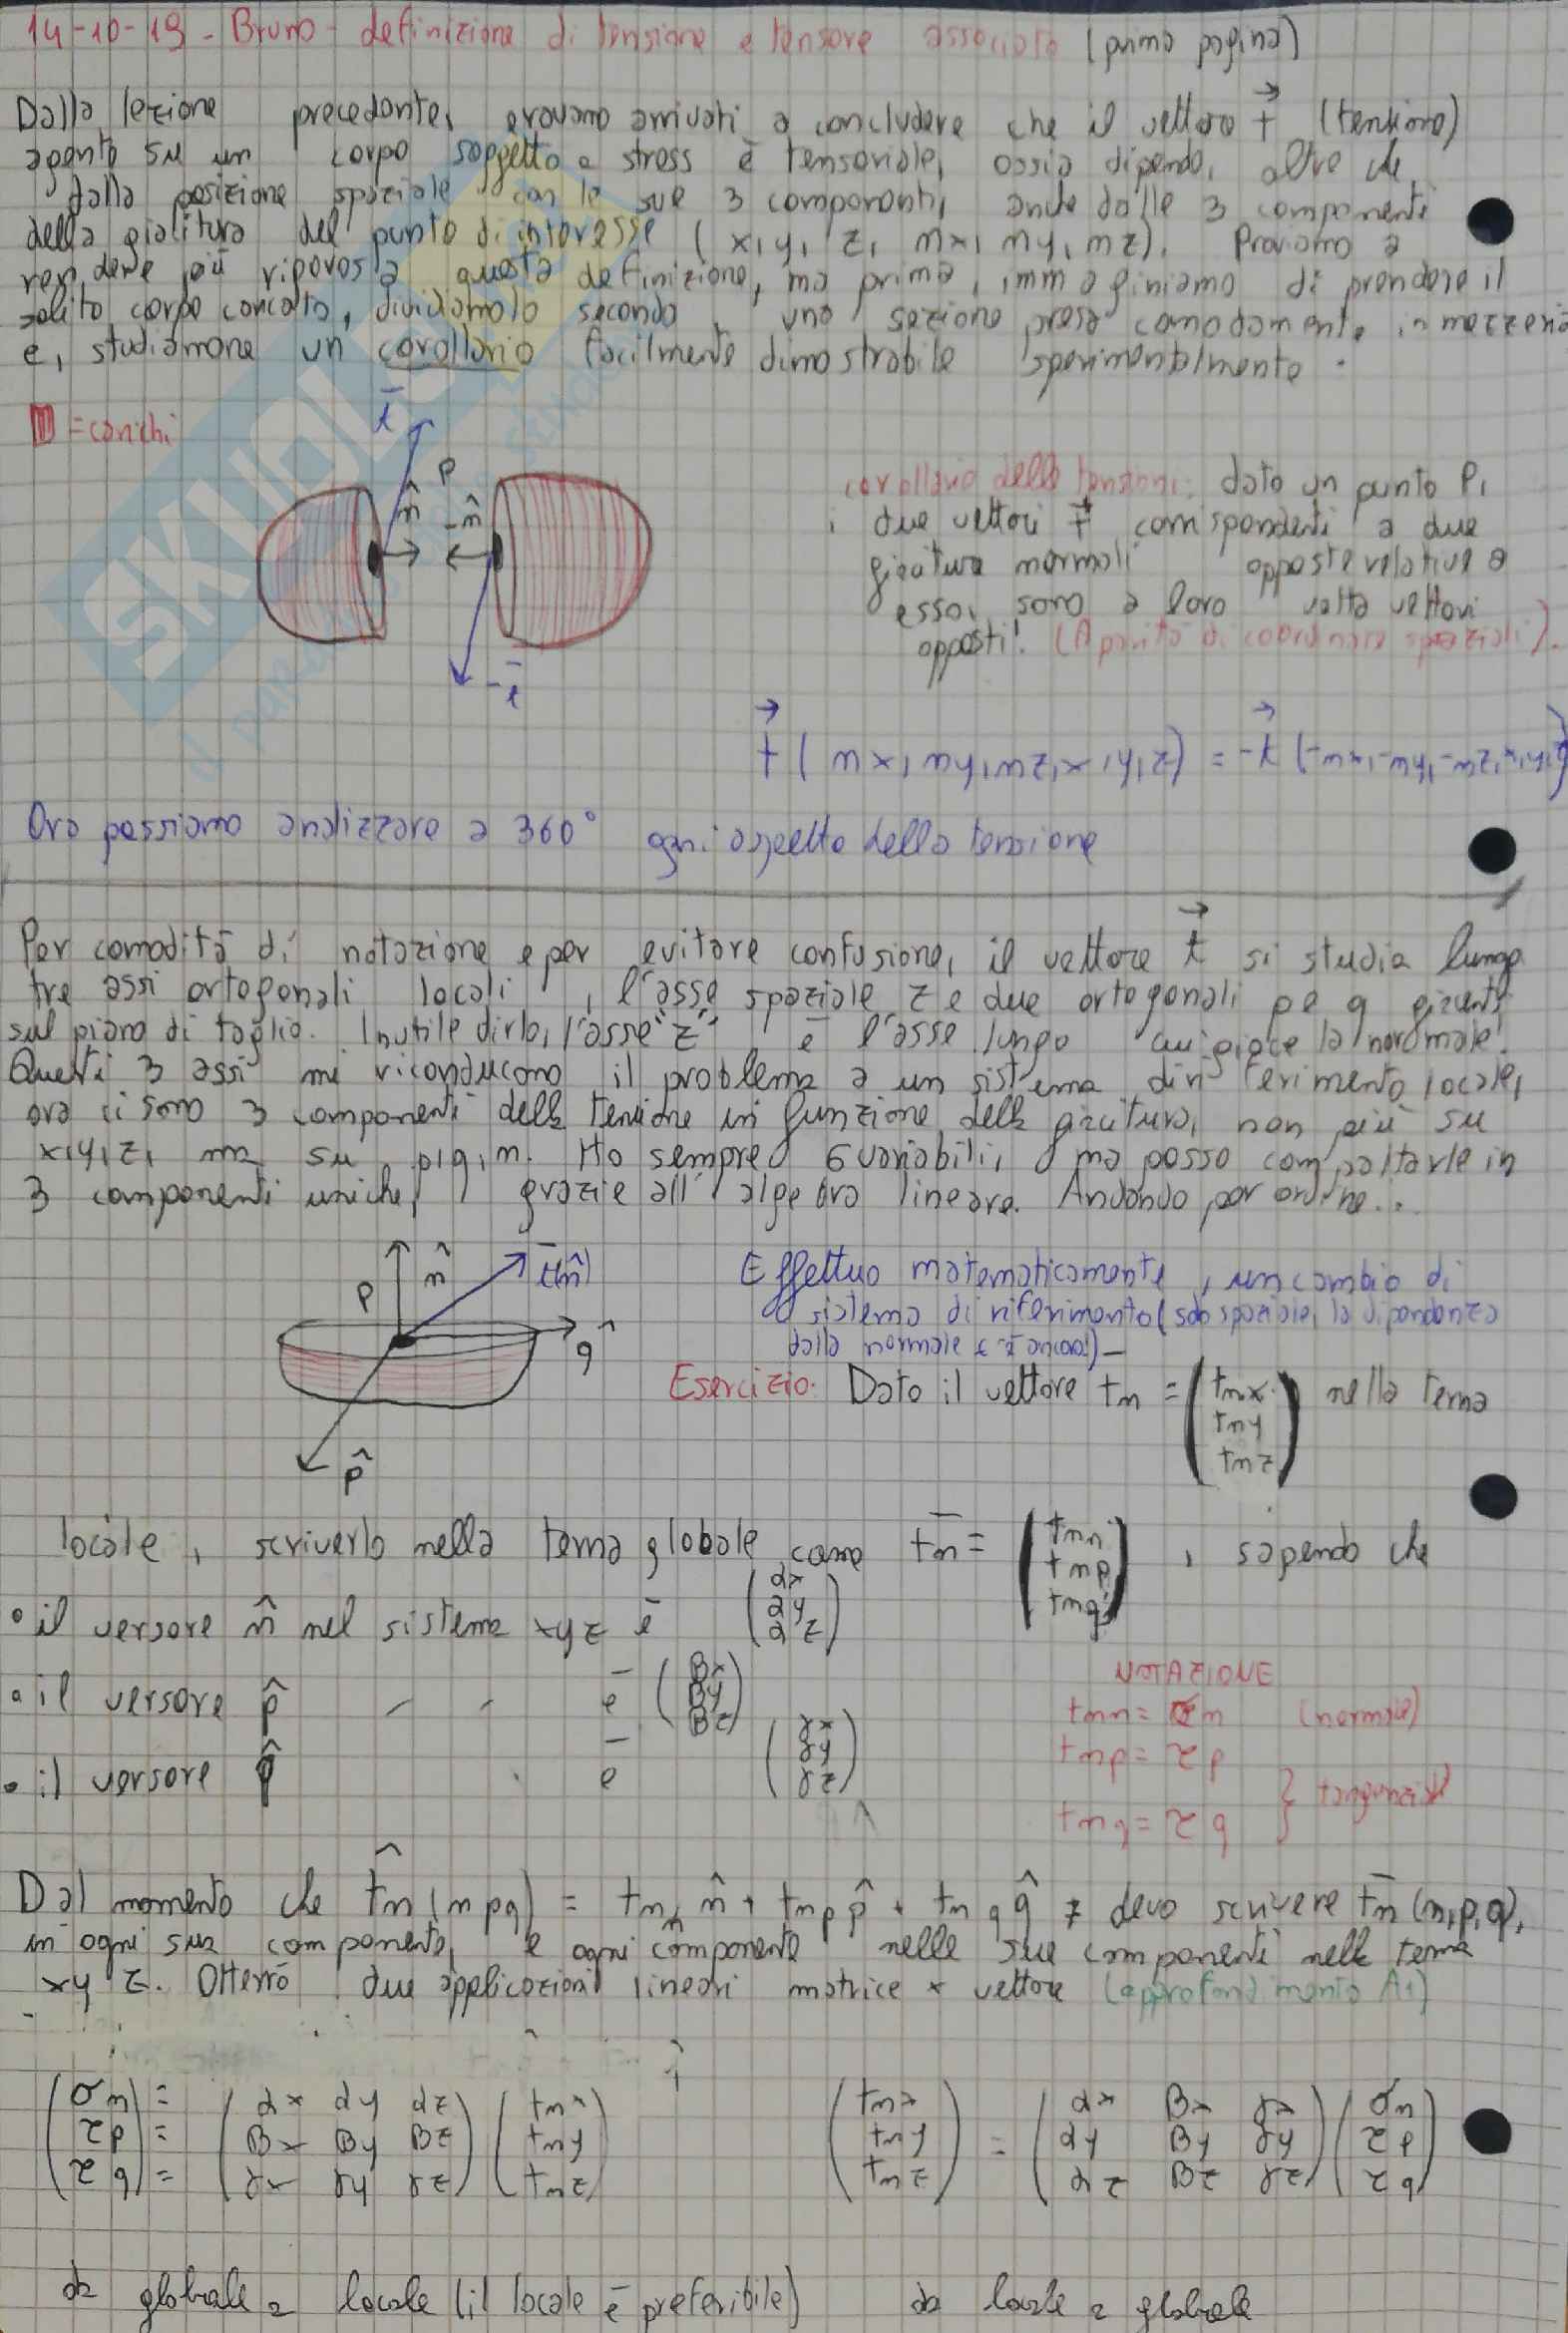 14-10-19 - Bruno - definizione di tensione e tensore associato (prima pagina)
Dalla lezione precedente, eravamo arrivati a concludere che il vettore t (tensione)
agente su un corpo soggetto a stress è tensoriale, ossia dipende, oltre che
dalla posizione spaziale con le sue 3 componenti, anche dalle 3 componenti
della giacitura del punto di interesse (x, y, z, nx, ny, nz). Proviamo a
rendere più rigorosa questa definizione, ma prima, immaginiamo di prendere il
solito corpo caricato, dividiamolo secondo una sezione presa comodamente in mezzeria
e, studiamone un corollario facilmente dimostrabile sperimentalmente.
= carichi
t̄
P
n̂
-n̂
-t̄
corollario delle tensioni: dato un punto P,
i due vettori t corrispondenti a due
giaciture normali opposte relative a
esso, sono a loro volta vettori
opposti! (A parità di coordinate spaziali).
t⃗ (nx, ny, nz, x, y, z) = -t⃗ (-nx, -ny, -nz, x, y, z)
Ora possiamo analizzare a 360° ogni aspetto della tensione
Per comodità di notazione e per evitare confusione, il vettore t⃗ si studia lungo
tre assi ortogonali locali, l'asse spaziale z e due ortogonali p e q giacenti
sul piano di taglio. Inutile dirlo, l'asse "z" è l'asse lungo cui giace la normale!
Questi 3 assi mi riconducono il problema a un sistema di riferimento locale,
ora ci sono 3 componenti della tensione in funzione della giacitura, non più su
x, y, z, ma su p, q, n. Ho sempre 6 variabili, ma posso compattarle in
3 componenti uniche, grazie all'algebra lineare. Andando per ordine...
P
n̂
t̄(n̂)
q̂
p̂
Effettuo matematicamente, un cambio di
sistema di riferimento (solo spaziale, la dipendenza
dalla normale c'è ancora!)
Esercizio: Dato il vettore tn = (tnx tny tnz) nella terna
locale, scriverlo nella terna globale come t̄n = (tnn tnp tnq), sapendo che
• il versore n̂ nel sistema xyz è (αx αy αz)
• il versore p̂ è (βx βy βz)
• il versore q̂ è (γx γy γz)
NOTAZIONE
tnn = σn (normale)
tnp = τp
tnq = τq } tangenziali
Dal momento che tn (npq) = tnn n̂ + tnp p̂ + tnq q̂ devo scrivere t̄n (n, p, q),
in ogni sua componente, e ogni componente nelle sue componenti nella terna
xyz. Otterrò due applicazioni lineari matrice x vettore (approfondimento A1)
(σn) = (αx αy αz) (tnx) (tnx) (αx βx γx) (σn)
(τp) = (βx βy βz) (tny) (tny) = (αy βy γy) (τp)
(τq) = (γx γy γz) (tnz) (tnz) (αz βz γz) (τq)
da globale a locale (il locale è preferibile) da locale a globale